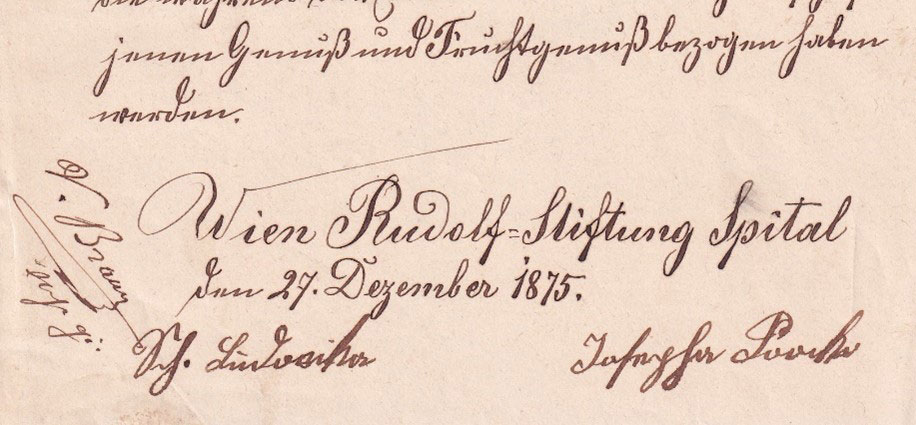 die während
jenen Genuß und Fruchtgenuß bezogen haben
werden.
Wien Rudolf-Stiftung Spital
den 27. Dezember 1875.
Sch. Ludovika Josepha